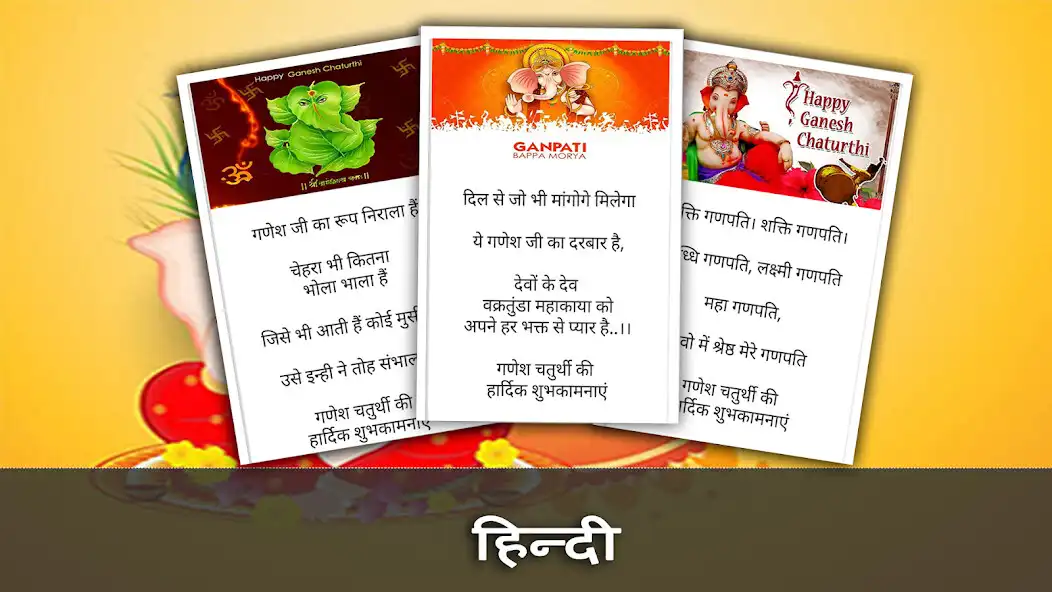 Happy Ganesh Chaturthi
ॐ
गणेश जी का रूप निराला हैं
चेहरा भी कितना
भोला भाला हैं
जिसे भी आती हैं कोई
उसे इन्ही ने तोह
गणेश चतुर्थी की
हार्दिक शुभकामनाएं
GANPATI
BAPPA MORYA
दिल से जो भी मांगोगे मिलेगा
ये गणेश जी का दरबार है,
देवों के देव
वक्रतुंडा महाकाया को
अपने हर भक्त से प्यार है..।।
गणेश चतुर्थी की
हार्दिक शुभकामनाएं
Happy
Ganesh
Chaturthi
गणपति। शक्ति गणपति।
गणपति, लक्ष्मी गणपति
महा गणपति,
में श्रेष्ठ मेरे गणपति
गणेश चतुर्थी की
शुभकामनाएं
हिन्दी